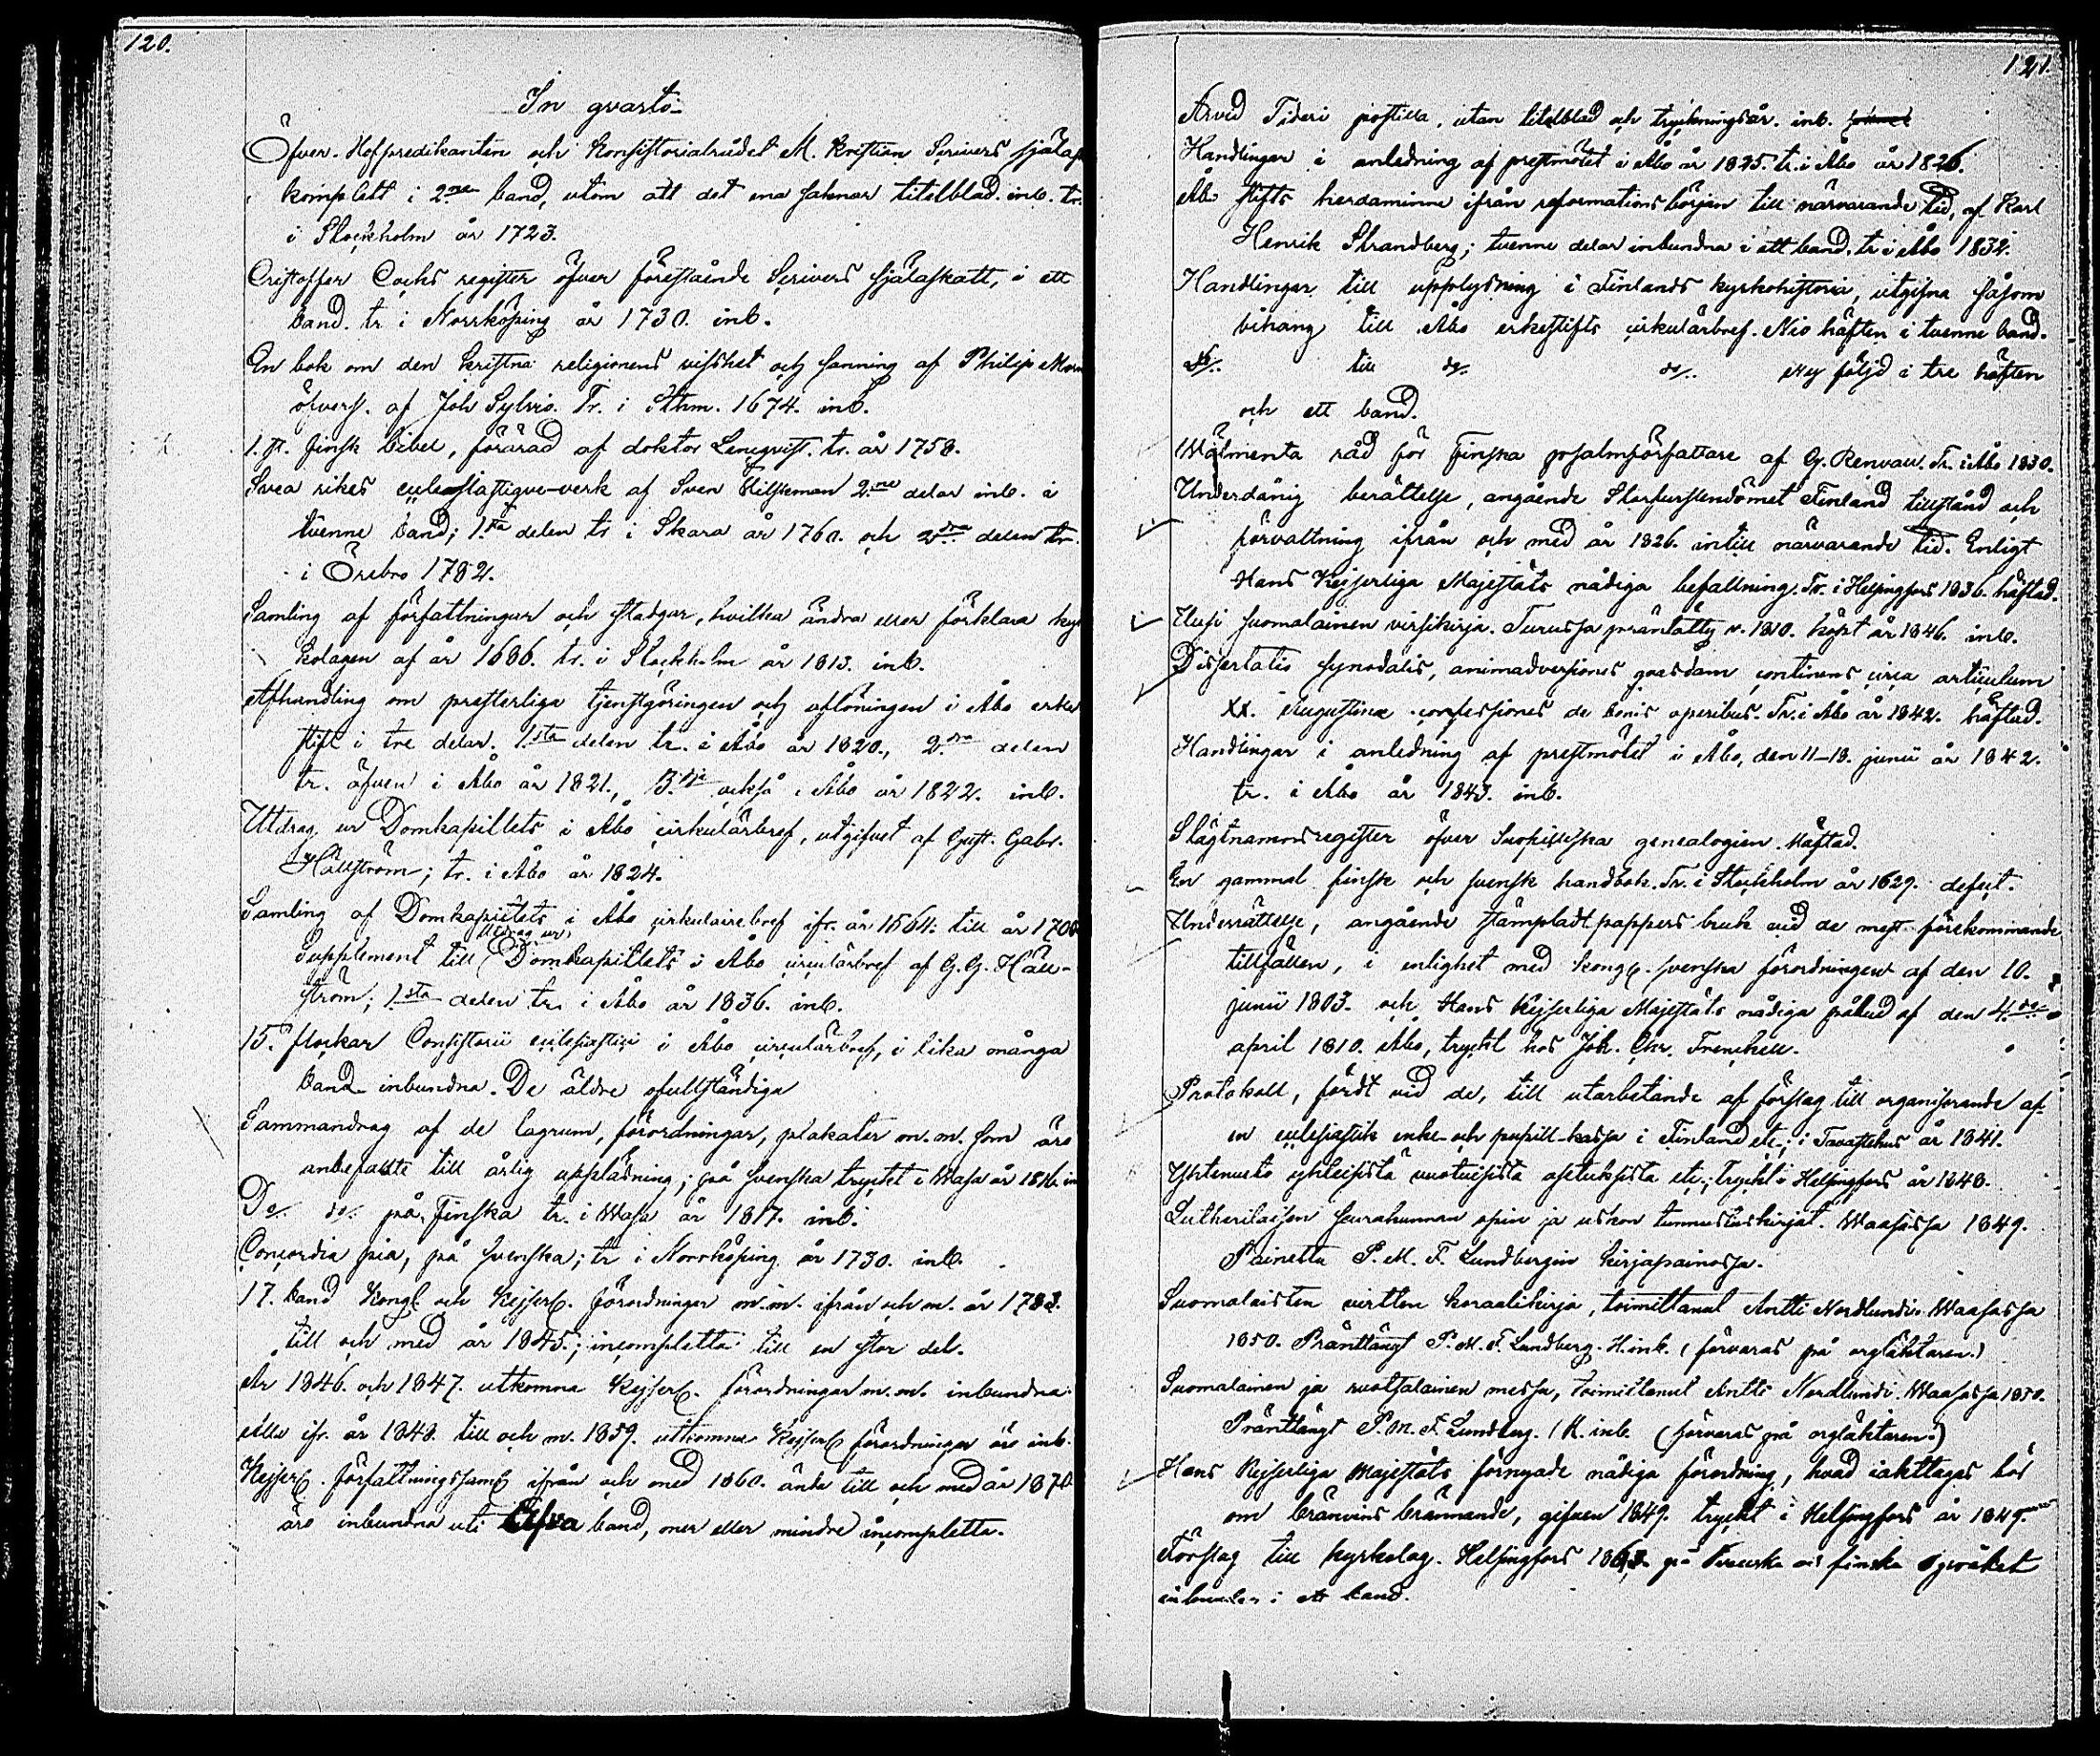 120.
In qvarto
Öfver-Hofpredikanten och Konsistorialrådet M. Kristian Scrivers själask
komplett i 2ne band, utom att det ena saknar titelblad. inb. tr.
i Stockholm år 1723.
Cristoffer Cochs register öfver förestående Scrivers själaskatt, i ett
band. tr. i Norrköping år 1730. inb.
En bok om den kristna religionens visshet och sanning af Philip Morn
öfvers. af Joh Sylvio. Tr. i Sthm. 1674. inb.
1. st. finsk bibel, förärad af doktor Lencqvist. tr. år 1758.
Svea rikes ecclesiastique-verk af Sven Wilskman 2ne delar inb. i
tvenne band; 1sta delen tr. i Skara år 1760. och 2dra delen tr.
i Örebro 1782.
Samling af författningar och stadgar, hvilka ändra eller förklara kyr
kolagen af år 1686. tr. i Stockholm år 1813. inb.
Afhandling om presterliga tjenstgöringen och aflöningen i Åbo erke
stift i tre delar. 1sta delen tr. i Åbo år 1820., 2dra delen
tr. äfven i Åbo år 1821., 3dje också i Åbo år 1822. inb.
Utdrag ur Domkapitlets i Åbo cirkulärbref, utgifvet af Gust. Gabr.
Hällström; tr. i Åbo år 1824.
Samling af Domkapitlets i Åbo cirkulairebref ifr. år 1564. till år 1700
Supplement till Utdrag ur Domkapitlets i Åbo circulärbref af G. G. Häll-
ström; 1sta delen tr. i Åbo år 1836. inb.
15. stockar Consistorii ecclesiastici i Åbo circulärbref, i lika många
band inbundna. De äldre ofullständiga
Sammandrag af de lagrum, förordningar, plakater m.m. som äro
anbefallte till årlig uppläsning; på svenska tryckt i Wasa år 1816. in
Do. do. på Finska tr. i Wasa år 1817. inb.
Concordia pia, på svenska; tr. i Norrköping år 1730. inb.
17. band Kongl. och Kejserl. förordningar m.m. ifrån och m. år 1783.
till och med år 1845; incompletta till en stor del.
År 1846. och 1847. utkomna Kejserl. förordningar m.m. inbundna.
Alla ifr. år 1848. till och m. 1859. utkomna Kejserl. förordningar äro inb.
Kejserl. författningssaml. ifrån och med 1860. ända till och med år 1870
äro inbundna uti Elfva band, mer eller mindre incompletta.
121.
Arvid Tideri postilla, utan titelblad och tryckningsår. inb.
Handlingar i anledning af prestmötet i Åbo år 1825. tr. i Åbo år 1826.
Åbo stifts herdaminne ifrån reformations början till närvarande tid, af Karl
Henrik Strandberg; tvenne delar inbundna i ett band. tr i Åbo 1832.
Handlingar till upplysning i Finlands kyrkohistoria, utgifna såsom
bihang till Åbo erkestifts cirkulärbref. Nio häften i tvenne band.
do. till do. do. Ny följd i tre häften
och ett band.
Wälmenta råd för Finska psalmförfattare af G. Renvall. Tr. i Åbo 1830.
Underdånig berättelse, angående Storfurstendömet Finland tillstånd och
förvaltning ifrån och med år 1826. intill närvarande tid. Enligt
Hans Kejserliga Majestäts nådiga befallning. Tr. i Helsingfors 1836. häftad.
Uusi suomalainen virsikirja. Turussa präntätty v. 1810. köpt år 1846. inb.
Dissertatio synodalis, animadversiones quasdam continens circa articulum
XX. Augustinæ confessiones de bonis operibus. Tr. i Åbo år 1842. häftad.
Handlingar i anledning af prestmötet i Åbo, den 11–18. junii år 1842.
tr. i Åbo år 1843. inb.
Slägtnamnsregister öfver genealogien. häftad.
En gammal finsk och svensk handbok. Tr. i Stockholm år 1629. defect.
Underrättelse, angående stämpladt pappers bruk vid de mest förekommande
tillfällen, i enlighet med kongl. svenska förordningen af den 10.
junii 1803. och Hans Kejserliga Majestäts nådiga påbud af den 4de
april 1810. Åbo, tryckt hos Joh. Chr. Frenckell.
Protokoll, fördt vid de, till utarbetande af förslag till organiserande af
en ecclesiastik enke- och pupill-kassa i Finland etc.; i Tavastehus år 1841.
Yhtenveto yhteisistä vuotuisista asetuksista etc.; tryckt i Helsingfors år 1848.
Lutherilaisen seurakunnan opin ja uskon tunnustuskirjat. Waasassa 1849.
Painettu P. M. F. Lundbergin kirjapainossa.
Suomalaisten virtten koraalikirja, toimittanut Antti Nordlund. Waasassa
1850. Pränttänyt P. M. F. Lundberg. H. inb. (förvaras på orgläktaren.)
Suomalainen ja ruotsalainen messu, toimittanut Antti Nordlund. Waasassa 1850.
Pränttänyt P. M. F. Lundberg. H. inb. (förvaras på orgläktaren.)
Hans Kejserliga Majestäts förnyade nådiga förordning, hvad iakttagas bör
om bränvins brännande, gifven 1849. tryckt i Helsingfors år 1849.
Förslag till kyrkolag. Helsingfors 1863. på Svenska och finska språket
inbunden i ett band.